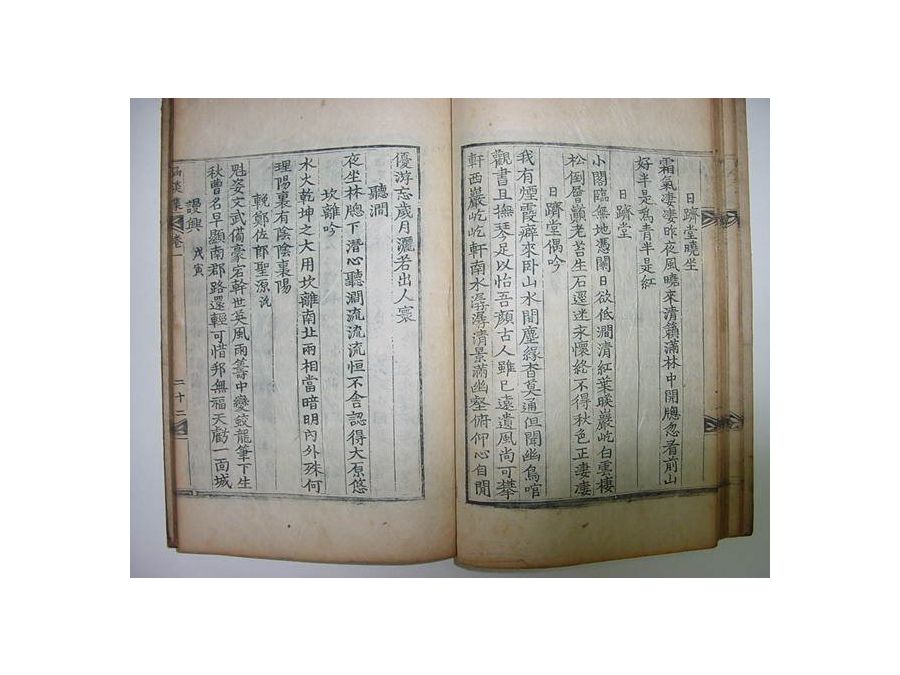 日躋堂曉坐
霜氣凄凄昨夜風曉來淸籟滿林中開牎忽看前山
好半是爲靑半是紅
日躋堂
小閣臨無地憑闌日欲低澗淸紅葉映巖屹白雲棲
松倒層巓老苔生石逕迷永懷終不得秋色正凄凄
日躋堂偶吟
我有煙霞癖來臥山水間塵緣杳莫通但聞幽鳥喧
觀書且撫琴足以怡吾顏古人雖已遠遺風尙可攀
軒西巖屹屹軒南水潺潺淸景滿幽壑俯仰心自閒
優游忘歲月灑若出人寰
聽澗
夜坐林牎下潛心聽澗流流流恒不舍認得大原悠
坎離吟
水火乾坤之大用坎離南北兩相當暗明內外殊何
理陽裏有陰陰裏陽
輓鄭佐郎聖源 沇
魁姿文武備豪宕幹世英風雨籌中變蛟龍筆下生
秋曹名早顯南郡路還輕可惜邦無福天虧一面城
謾興 戊寅
集 卷一
二十二